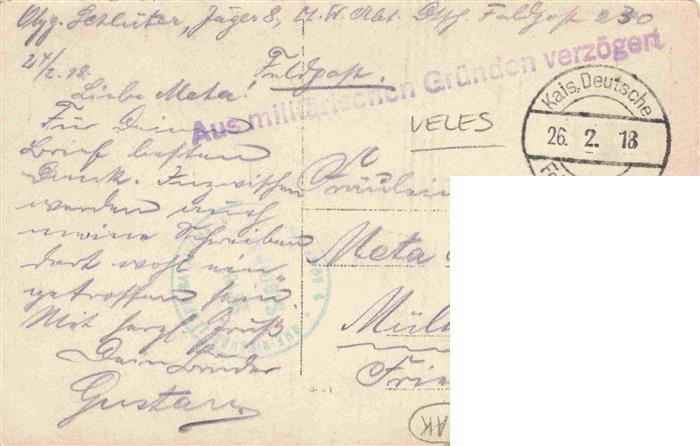 Schlüter, Jäger 8, Dtsch. Feldpost 230
24/2.18.
Feldpost.
Aus militärischen Gründen verzögert
Liebe Meta!
Für Deinen
Brief besten
Dank. Inzwischen
werden auch
meine Schreiben
dort wohl ein-
getroffen sein.
Mit herzl. Gruß
Dein Bruder
Gustav.
VELES
Kais. Deutsche
26. 2. 18
Fräulein
Meta
Mül
Frie
AK